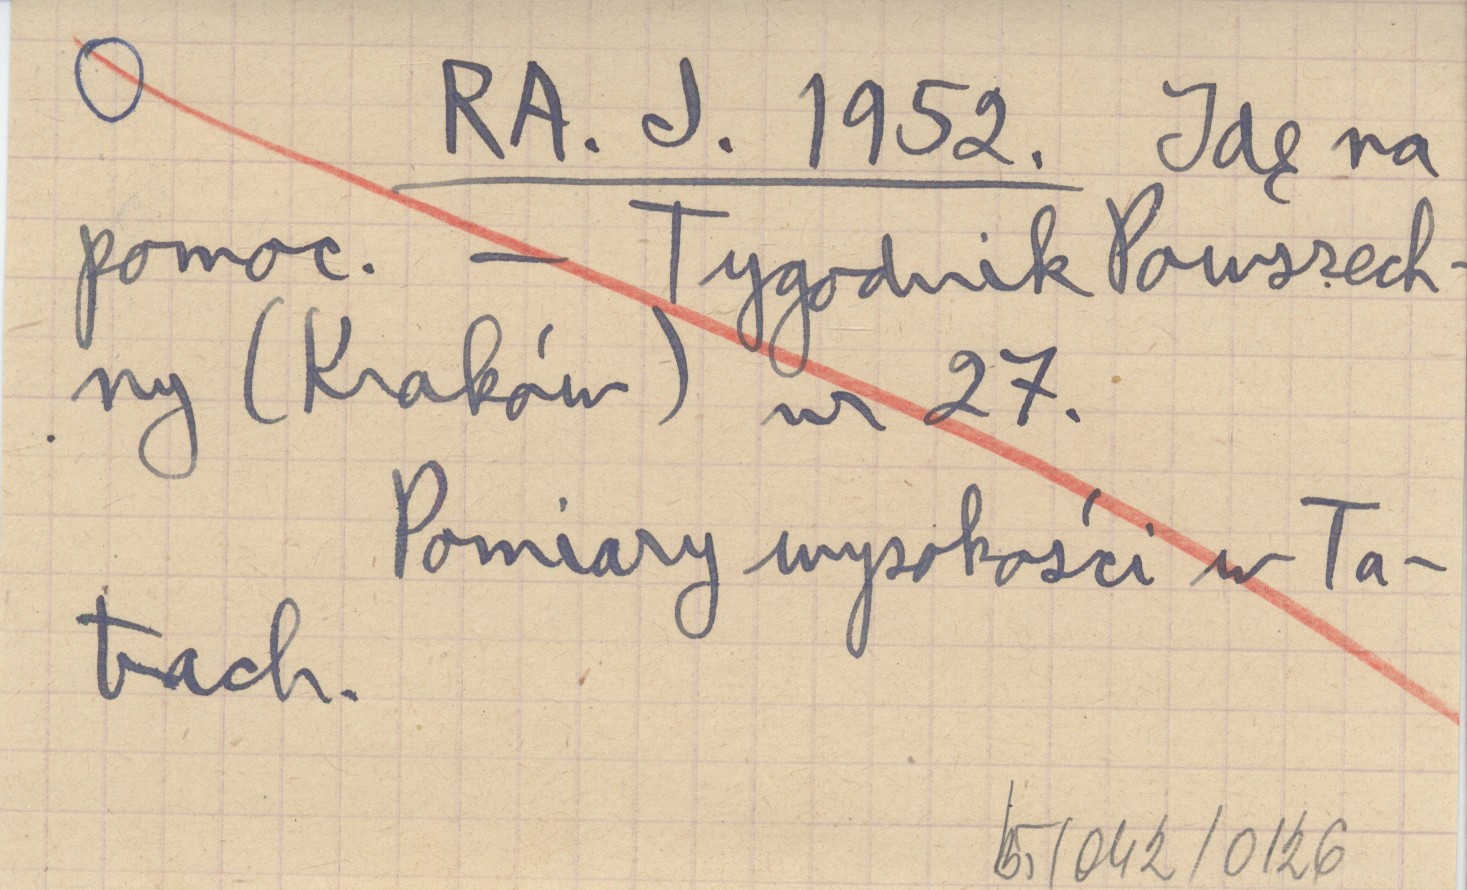 RA. J. 1952. Idę na
pomoc. — Tygodnik Powszech-
ny (Kraków) nr 27.
Pomiary wysokości w Ta-
trach.
b./042/0126